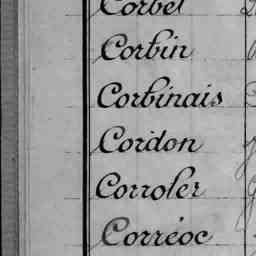 Corbel
Corbin
Corbinais
Cordon
Corroler
Corréoc